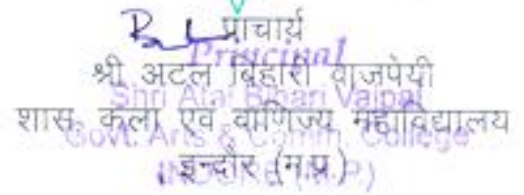 प्राचार्य
Principal
श्री अटल बिहारी वाजपेयी
Shri Atal Bihari Vajpai
शास. कला एवं वाणिज्य महाविद्यालय
Govt. Arts & Comm. College
इन्दौर (म.प्र.)
INDORE (M.P.)